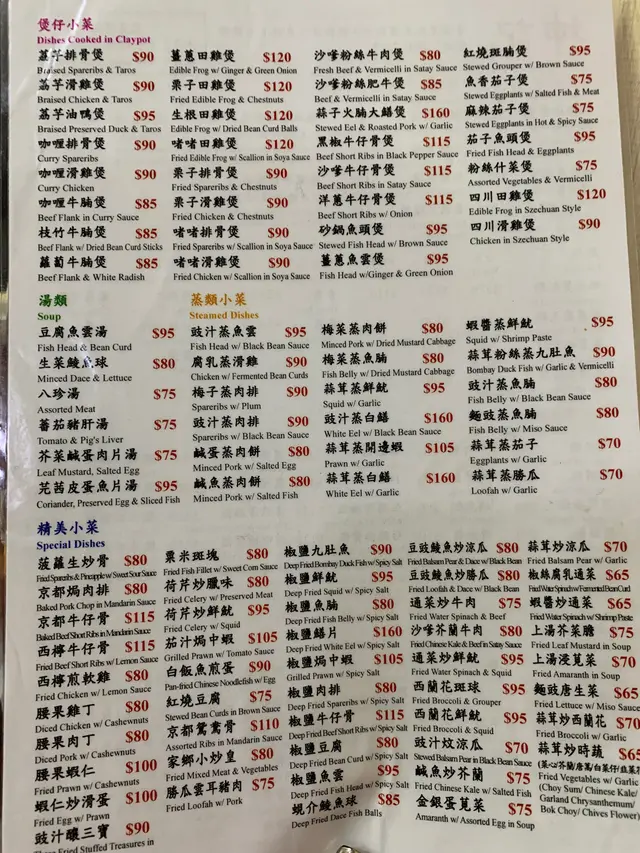 煲仔小菜
Dishes Cooked in Claypot
荔芋排骨煲 $90
Braised Spareribs & Taros
荔芋滑雞煲 $90
Braised Chicken & Taros
荔芋油鴨煲 $95
Braised Preserved Duck & Taros
咖喱排骨煲 $90
Curry Spareribs
咖喱滑雞煲 $90
Curry Chicken
咖喱牛腩煲 $85
Beef Flank in Curry Sauce
枝竹牛腩煲 $85
Beef Flank w/ Dried Bean Curd Sticks
蘿蔔牛腩煲 $85
Beef Flank & White Radish
薑蔥田雞煲 $120
Edible Frog w/ Ginger & Green Onion
栗子田雞煲 $120
Fried Edible Frog & Chestnuts
生根田雞煲 $120
Edible Frog w/ Dried Bean Curd Balls
啫啫田雞煲 $120
Fried Edible Frog w/ Scallion in Soya Sauce
栗子排骨煲 $90
Fried Spareribs & Chestnuts
栗子滑雞煲 $90
Fried Chicken & Chestnuts
啫啫排骨煲 $90
Fried Spareribs w/ Scallion in Soya Sauce
啫啫滑雞煲 $90
Fried Chicken w/ Scallion in Soya Sauce
沙嗲粉絲牛肉煲 $80
Fresh Beef & Vermicelli in Satay Sauce
沙嗲粉絲肥牛煲 $85
Beef & Vermicelli in Satay Sauce
蒜子火腩大鱔煲 $160
Stewed Eel & Roasted Pork w/ Garlic
黑椒牛仔骨煲 $115
Beef Short Ribs in Black Pepper Sauce
沙嗲牛仔骨煲 $115
Beef Short Ribs in Satay Sauce
洋蔥牛仔骨煲 $115
Beef Short Ribs w/ Onion
砂鍋魚頭煲 $95
Stewed Fish Head w/ Brown Sauce
薑蔥魚雲煲 $95
Fish Head w/Ginger & Green Onion
紅燒斑腩煲 $95
Stewed Grouper w/ Brown Sauce
魚香茄子煲 $75
Stewed Eggplants w/ Salted Fish & Meat
麻辣茄子煲 $75
Stewed Eggplants in Hot & Spicy Sauce
茄子魚頭煲 $95
Fried Fish Head & Eggplants
粉絲什菜煲 $75
Assorted Vegetables & Vermicelli
四川田雞煲 $120
Edible Frog in Szechuan Style
四川滑雞煲 $90
Chicken in Szechuan Style
湯類
Soup
豆腐魚雲湯 $95
Fish Head & Bean Curd
生菜鯪魚球 $80
Minced Dace & Lettuce
八珍湯 $75
Assorted Meat
蕃茄豬肝湯 $75
Tomato & Pig's Liver
芥菜鹹蛋肉片湯 $75
Leaf Mustard, Salted Egg
芫茜皮蛋魚片湯 $95
Coriander, Preserved Egg & Sliced Fish
蒸類小菜
Steamed Dishes
豉汁蒸魚雲 $95
Fish Head w/ Black Bean Sauce
腐乳蒸滑雞 $90
Chicken w/ Fermented Bean Curds
梅子蒸肉排 $90
Spareribs w/ Plum
豉汁蒸肉排 $90
Spareribs w/ Black Bean Sauce
鹹蛋蒸肉餅 $80
Minced Pork w/ Salted Egg
鹹魚蒸肉餅 $80
Minced Pork w/ Salted Fish
梅菜蒸肉餅 $80
Minced Pork w/ Dried Mustard Cabbage
梅菜蒸魚腩 $80
Fish Belly w/ Dried Mustard Cabbage
蒜茸蒸鮮魷 $95
Squid w/ Garlic
豉汁蒸白鱔 $160
White Eel w/ Black Bean Sauce
蒜茸蒸開邊蝦 $105
Prawn w/ Garlic
蒜茸蒸白鱔 $160
White Eel w/ Garlic
蝦醬蒸鮮魷 $95
Squid w/ Shrimp Paste
蒜茸粉絲蒸九肚魚 $90
Bombay Duck Fish w/ Garlic & Vermicelli
豉汁蒸魚腩 $80
Fish Belly w/ Black Bean Sauce
麵豉蒸魚腩 $80
Fish Belly w/ Miso Sauce
蒜茸蒸茄子 $70
Eggplants w/ Garlic
蒜茸蒸勝瓜 $70
Loofah w/ Garlic
精美小菜
Special Dishes
菠蘿生炒骨 $80
Fried Spareribs & Pineapple w/ Sweet Sour Sauce
京都焗肉排 $80
Baked Pork Chop in Mandarin Sauce
京都牛仔骨 $115
Baked Beef Short Ribs in Mandarin Sauce
西檸牛仔骨 $115
Fried Beef Short Ribs w/ Lemon Sauce
西檸煎軟雞 $80
Fried Chicken w/ Lemon Sauce
腰果雞丁 $80
Diced Chicken w/ Cashewnuts
腰果肉丁 $80
Diced Pork w/ Cashewnuts
腰果蝦仁 $100
Fried Prawn w/ Cashewnuts
蝦仁炒滑蛋 $100
Fried Egg w/ Prawn
豉汁釀三寶 $90
Fried Stuffed Treasures in
粟米斑塊 $80
Fried Fish Fillet w/ Sweet Corn Sauce
荷芹炒臘味 $80
Fried Celery w/ Preserved Meat
荷芹炒鮮魷 $95
Fried Celery w/ Squid
茄汁焗中蝦 $105
Grilled Prawn w/ Tomato Sauce
白飯魚煎蛋 $90
Pan-fried Chinese Noodlefish w/ Egg
紅燒豆腐 $75
Stewed Bean Curds in Brown Sauce
京都鴛鴦骨 $110
Assorted Ribs in Mandarin Sauce
家鄉小炒皇 $80
Fried Mixed Meat & Vegetables
勝瓜雲耳豬肉 $75
Fried Loofah w/ Pork
椒鹽九肚魚 $90
Deep Fried Bombay Duck Fish w/ Spicy Salt
椒鹽鮮魷 $95
Deep Fried Squid w/ Spicy Salt
椒鹽魚腩 $80
Deep Fried Fish Belly w/ Spicy Salt
椒鹽鱔片 $160
Deep Fried White Eel w/ Spicy Salt
椒鹽焗中蝦 $105
Grilled Prawn w/ Spicy Salt
椒鹽肉排 $80
Deep Fried Spareribs w/ Spicy Salt
椒鹽牛仔骨 $115
Deep Fried Beef Short Ribs w/ Spicy Salt
椒鹽豆腐 $80
Deep Fried Bean Curd w/ Spicy Salt
椒鹽魚雲 $95
Deep Fried Fish Head w/ Spicy Salt
蜆介鯪魚球 $85
Deep Fried Dace Fish Balls
豆豉鯪魚炒涼瓜 $80
Fried Balsam Pear & Dace w/ Black Bean
豆豉鯪魚炒勝瓜 $80
Fried Loofah & Dace w/ Black Bean
通菜炒牛肉 $75
Fried Water Spinach & Beef
沙嗲芥蘭牛肉 $80
Fried Chinese Kale & Beef in Satay Sauce
通菜炒鮮魷 $95
Fried Water Spinach & Squid
西蘭花斑球 $95
Fried Broccoli & Grouper
西蘭花鮮魷 $95
Fried Broccoli & Squid
豉汁炆涼瓜 $70
Stewed Balsam Pear in Black Bean Sauce
鹹魚炒芥蘭 $75
Fried Chinese Kale w/ Salted Fish
金銀蛋莧菜 $75
Amaranth w/ Assorted Egg in Soup
蒜茸炒涼瓜 $70
Fried Balsam Pear w/ Garlic
椒絲腐乳通菜 $65
Fried Water Spinach w/ Fermented Bean Curd
蝦醬炒通菜 $65
Fried Water Spinach w/ Shrimp Paste
上湯芥菜膽 $75
Fried Leaf Mustard in Soup
上湯浸莧菜 $70
Fried Amaranth in Soup
麵豉唐生菜 $65
Fried Lettuce w/ Miso Sauce
蒜茸炒西蘭花 $70
Fried Broccoli w/ Garlic
蒜茸炒時蔬 $65
Fried Vegetables w/ Garlic
(Choy Sum/ Chinese Kale/
Garland Chrysanthemum/
Bok Choy/ Chives Flower)